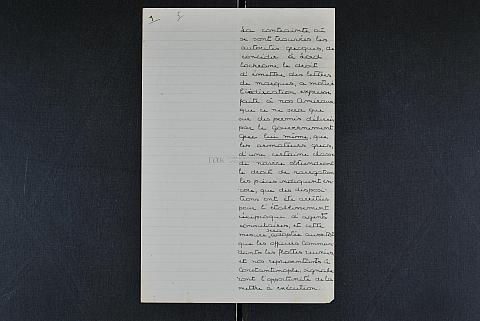 1
La contrainte où
se sont trouvées les
autorités grecques, de
concéder à Lord
Cochrane le droit
d'émettre des lettres
de marques, a motivé
l'indication expresse
faite à nos Amiraux
que ce ne sera que
sur des permis délivrés
par le Gouvernement
Grec lui même, que
les armateurs grecs,
d'une certaine classe
de navire obtiendront
le droit de navigation
les pièces indiquent en-
core, que des disposi-
tions ont été arrêtées
pour l'établissement
réciproque d'agents
consulaires, et cette
mesure, adoptée aussitôt
que les officiers Comman-
dants les flottes réunies
et nos représentants à
Constantinople, signale-
ront l'opportunité de la
mettre à exécution.